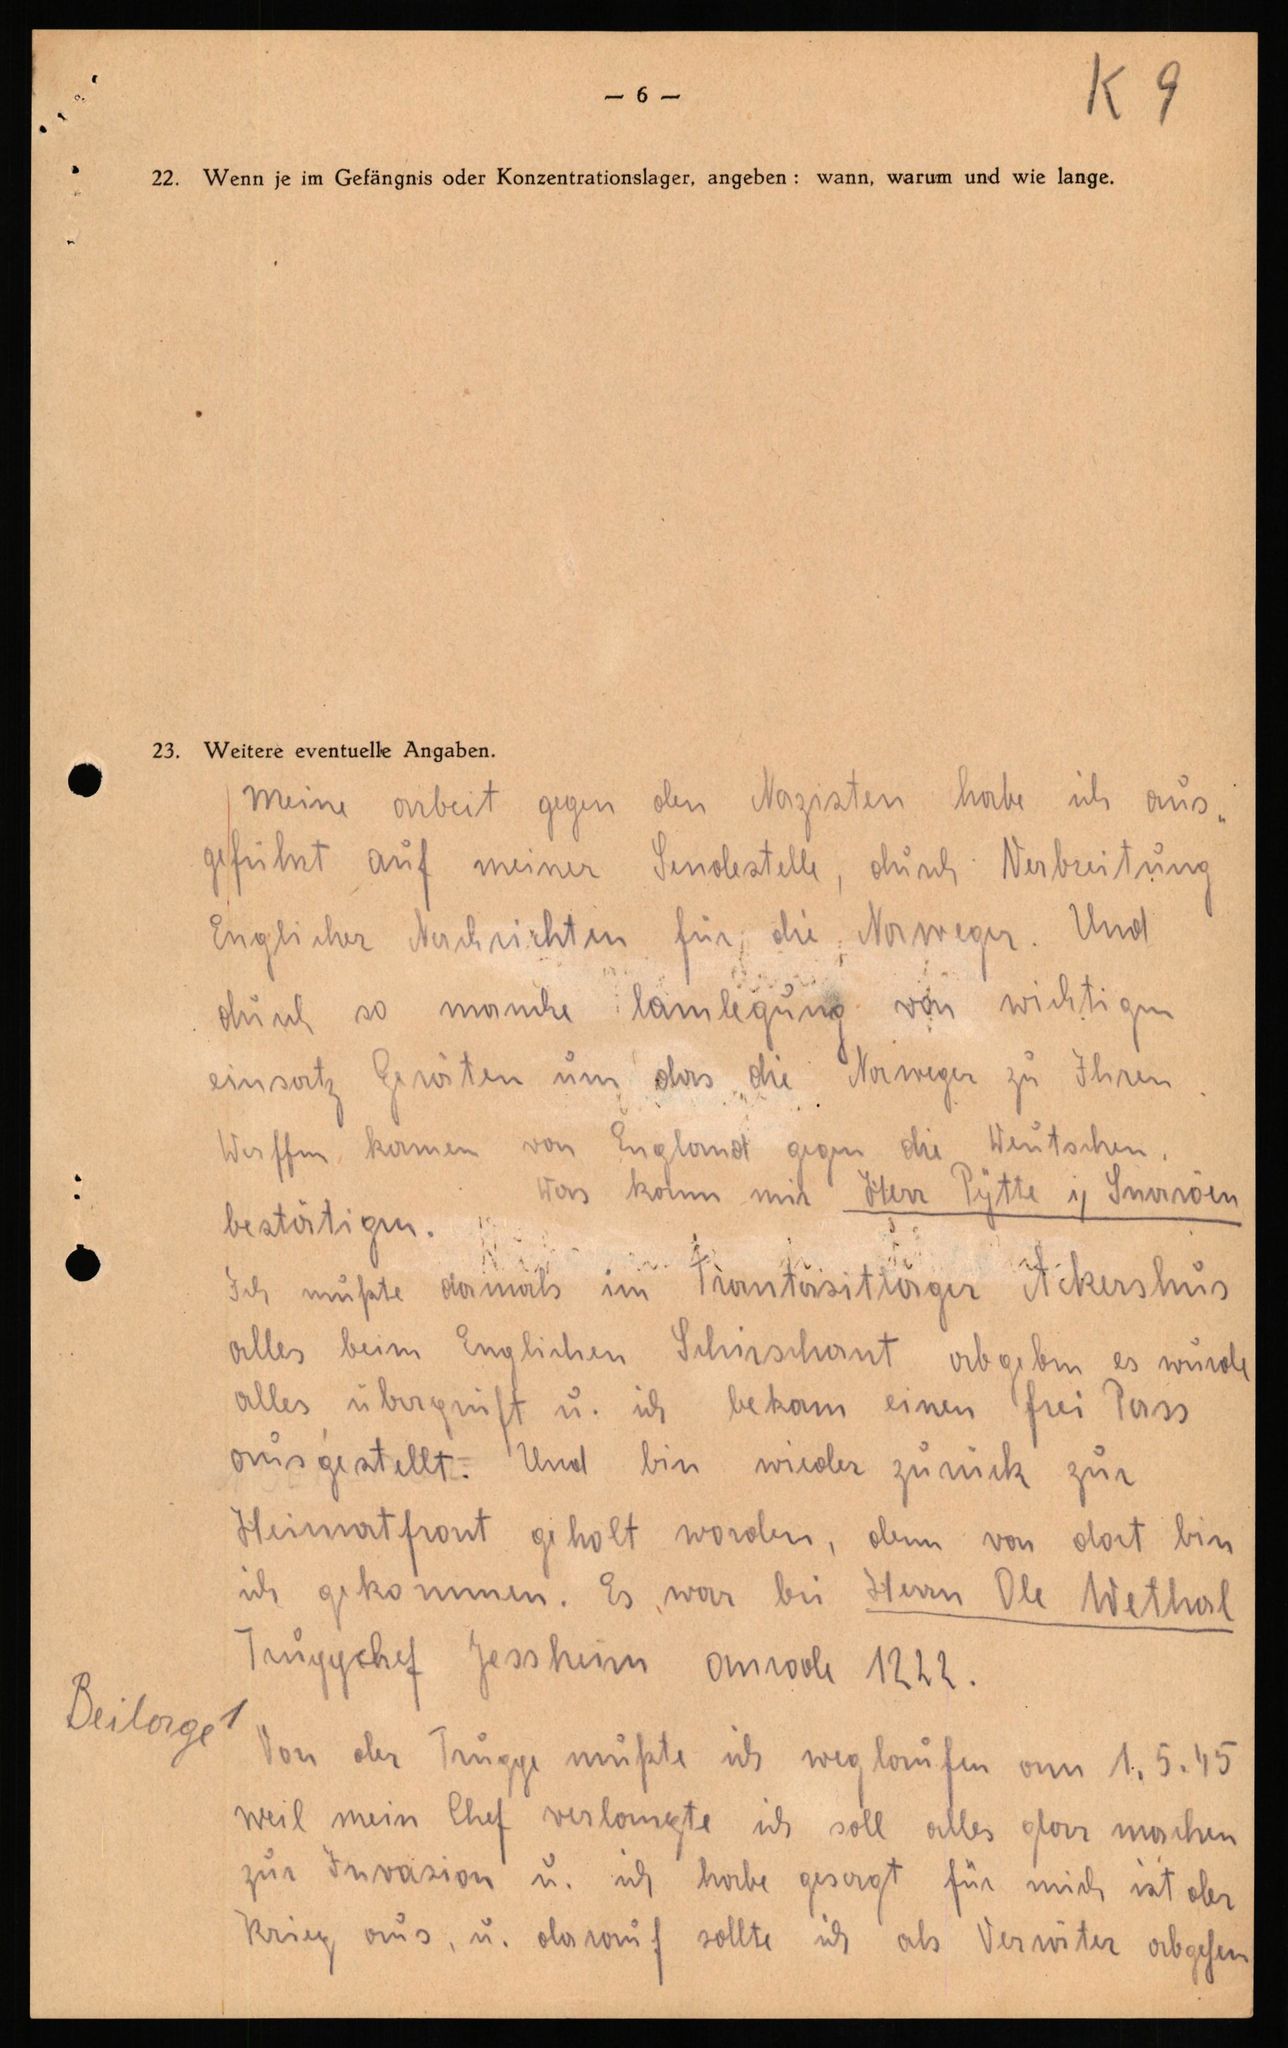 — 6 —
K 9
22. Wenn je im Gefängnis oder Konzentrationslager, angeben: wann, warum und wie lange.
23. Weitere eventuelle Angaben.
Meine arbeit gegen den Nazisten habe ich aus„
geführt auf meiner Sendestelle, durch Verbreitung
Englicher Nachrichten für die Norweger. Und
durch so manche lamlegung von wichtigen
einsatz Geräten um das die Norweger zu Ihren
Waffen kamen von England gegen die Deutschen.
Das kann mir Herr Pytte i/ Snaröen
bestätigen.
Ich mußte damals im Trantasitlager Akershus
alles beim Englichen Schirschant abgeben es wurde
alles übergrüft u. ich bekam einen frei Pass
ausgestellt. Und bin wieder zurück zur
Heimatfront geholt worden, denn von dort bin
ich gekommen. Es war bei Herrn Ole Wethal
Truppchef Jessheim omrode 1222.
Beilage 1
Von der Truppe mußte ich weglaufen am 1.5.45
weil mein Chef verlangte ich soll alles glar machen
zur Invasion u. ich habe gesagt für mich ist der
Krieg aus, u. darauf sollte ich als Verräter abgefen